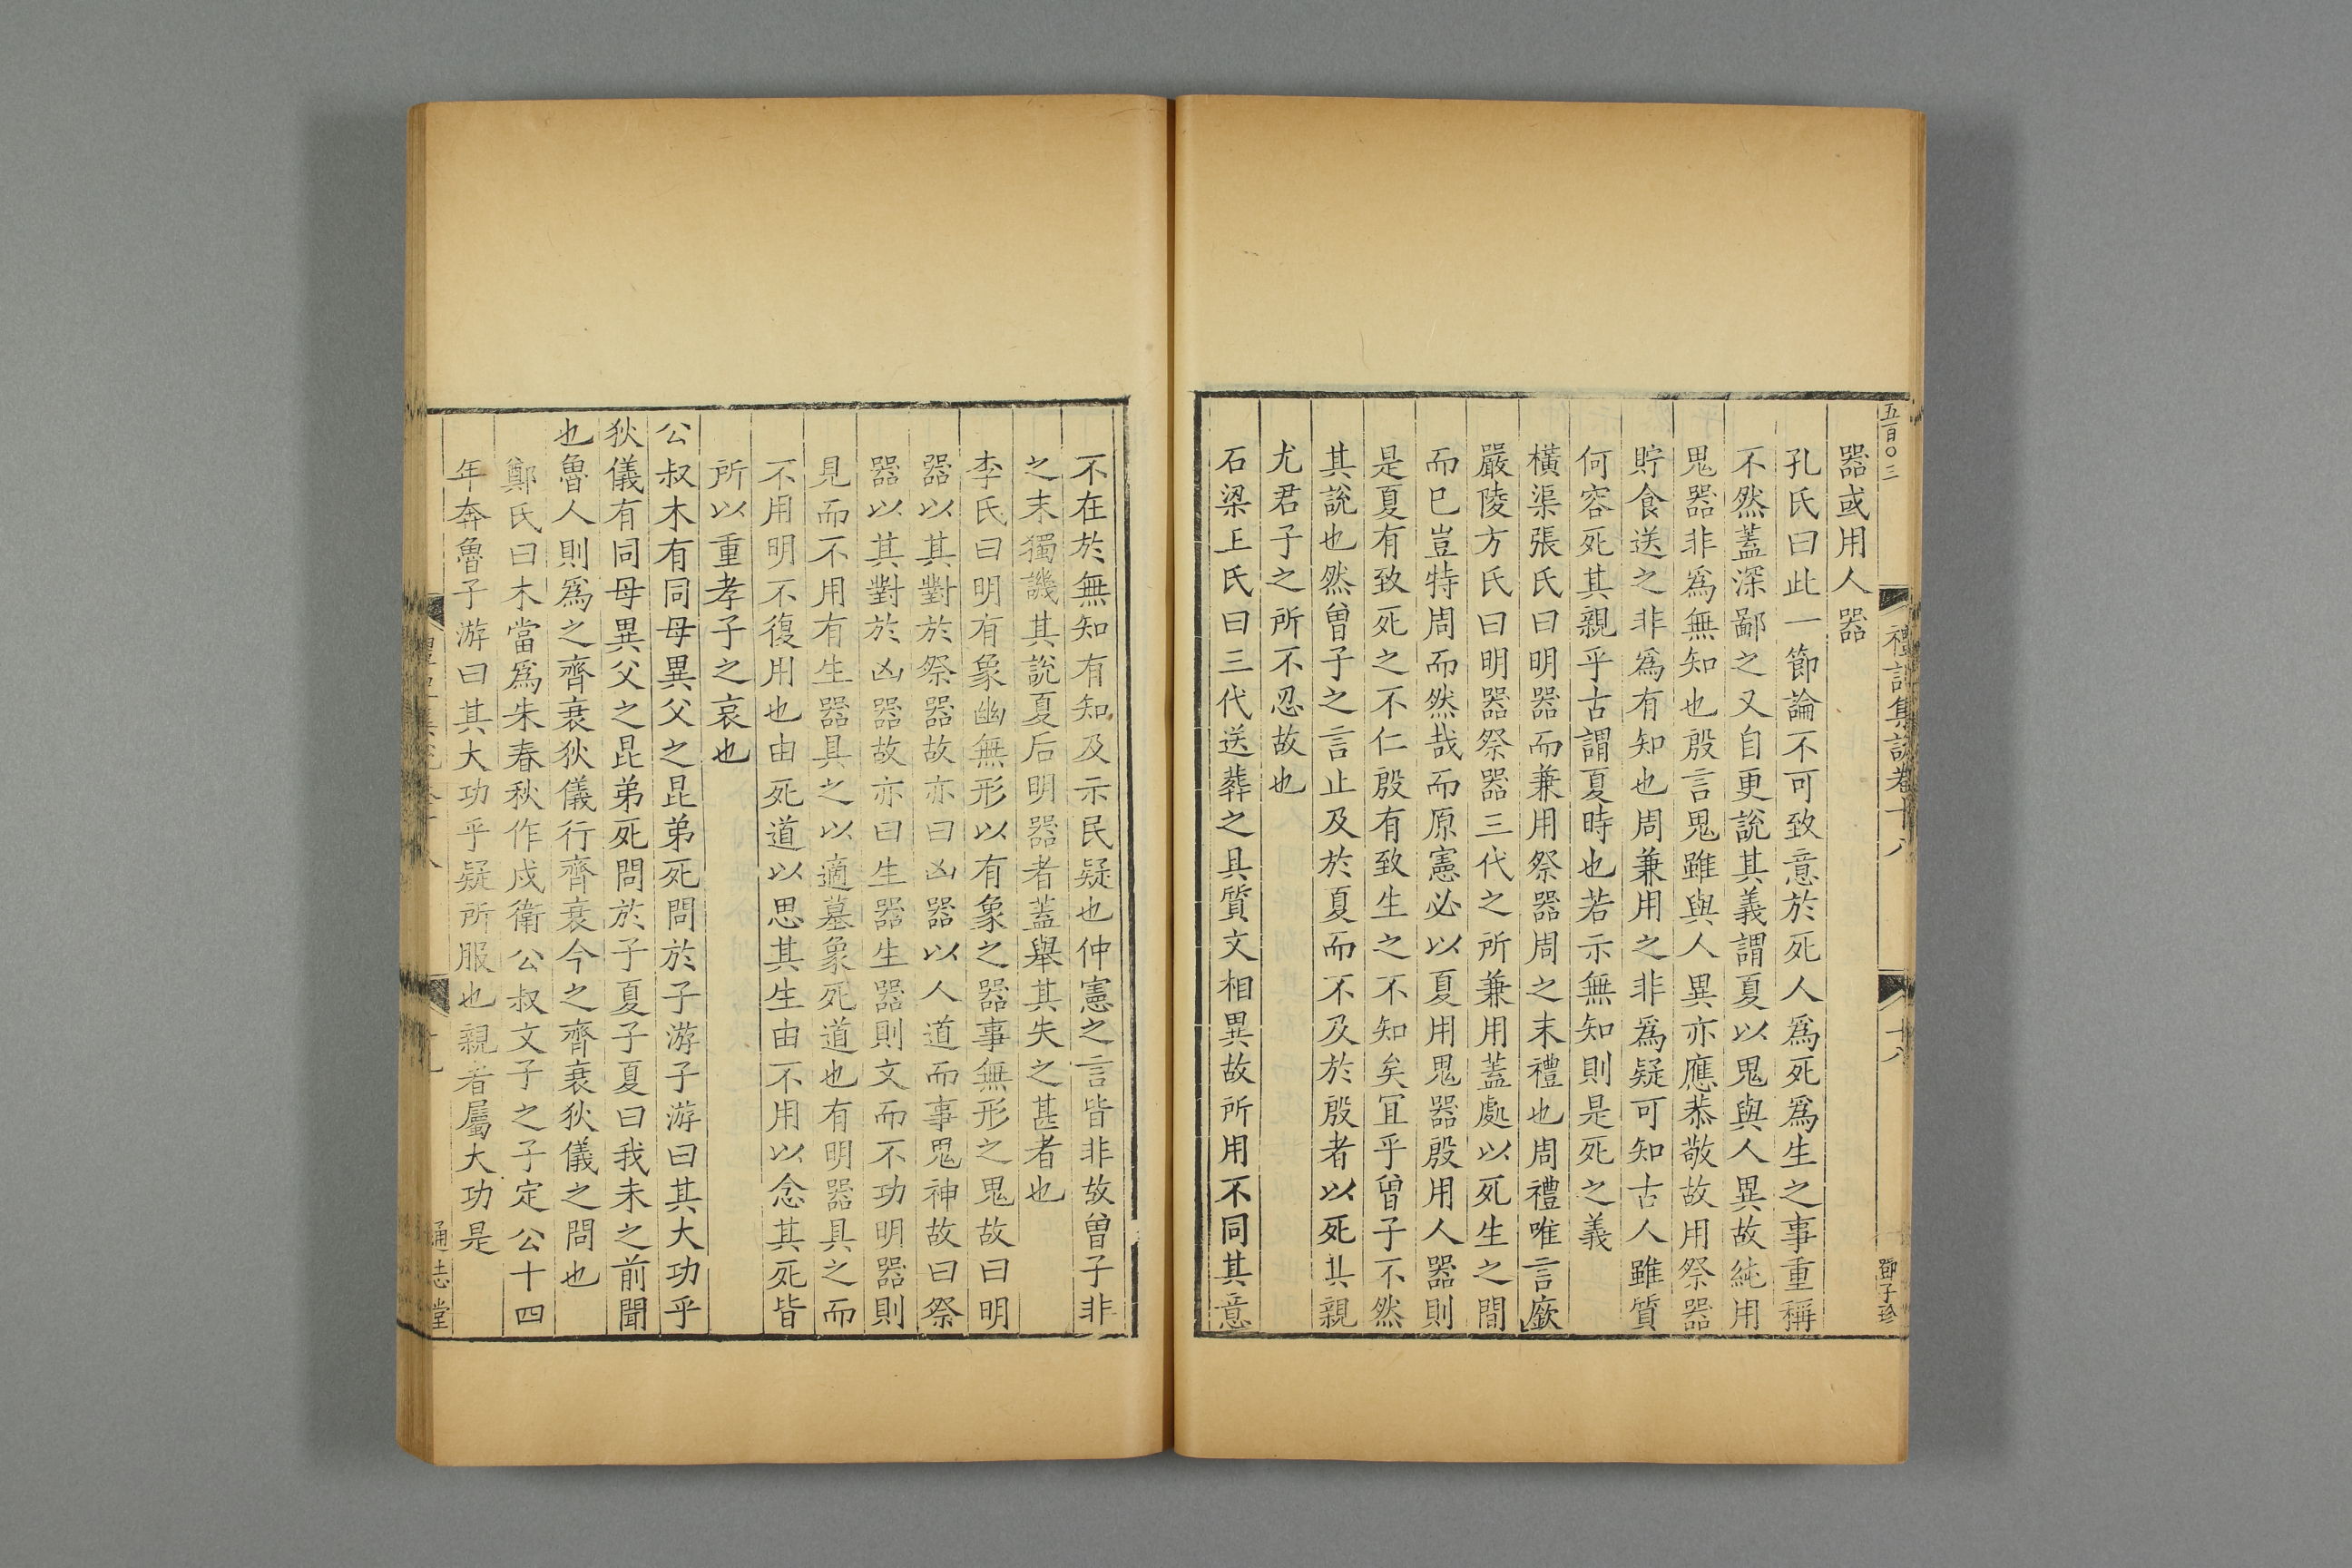 五百〇三
禮記集說卷十八
十八
鄧子珍
器或用人器
孔氏曰此一節論不可致意於死人爲死爲生之事重稱
不然蓋深鄙之又自更說其義謂夏以鬼與人異故純用
鬼器非爲無知也殷言鬼雖與人異亦應恭敬故用祭器
貯食送之非爲有知也周兼用之非爲疑可知古人雖質
何容死其親乎古謂夏時也若示無知則是死之義
橫渠張氏曰明器而兼用祭器周之末禮也周禮唯言廞
嚴陵方氏曰明器祭器三代之所兼用蓋處以死生之間
而已豈特周而然哉而原憲必以夏用鬼器殷用人器則
是夏有致死之不仁殷有致生之不知矣冝乎曾子不然
其說也然曾子之言止及於夏而不及於殷者以死其親
尤君子之所不忍故也
石梁王氏曰三代送葬之具質文相異故所用不同其意
不在於無知有知及示民疑也仲憲之言皆非故曾子非
之末獨譏其說夏后明器者蓋舉其失之甚者也
李氏曰明有象幽無形以有象之器事無形之鬼故曰明
器以其對於祭器故亦曰凶器以人道而事鬼神故曰祭
器以其對於凶器故亦曰生器生器則文而不功明器則
見而不用有生器具之以適墓象死道也有明器具之而
不用明不復用也由死道以思其生由不用以念其死皆
所以重孝子之哀也
公叔木有同母異父之昆弟死問於子游子游曰其大功乎
狄儀有同母異父之昆弟死問於子夏子夏曰我未之前聞
也魯人則爲之齊衰狄儀行齊衰今之齊衰狄儀之問也
鄭氏曰木當爲朱春秋作戍衛公叔文子之子定公十四
年奔魯子游曰其大功乎疑所服也親者屬大功是
通志堂